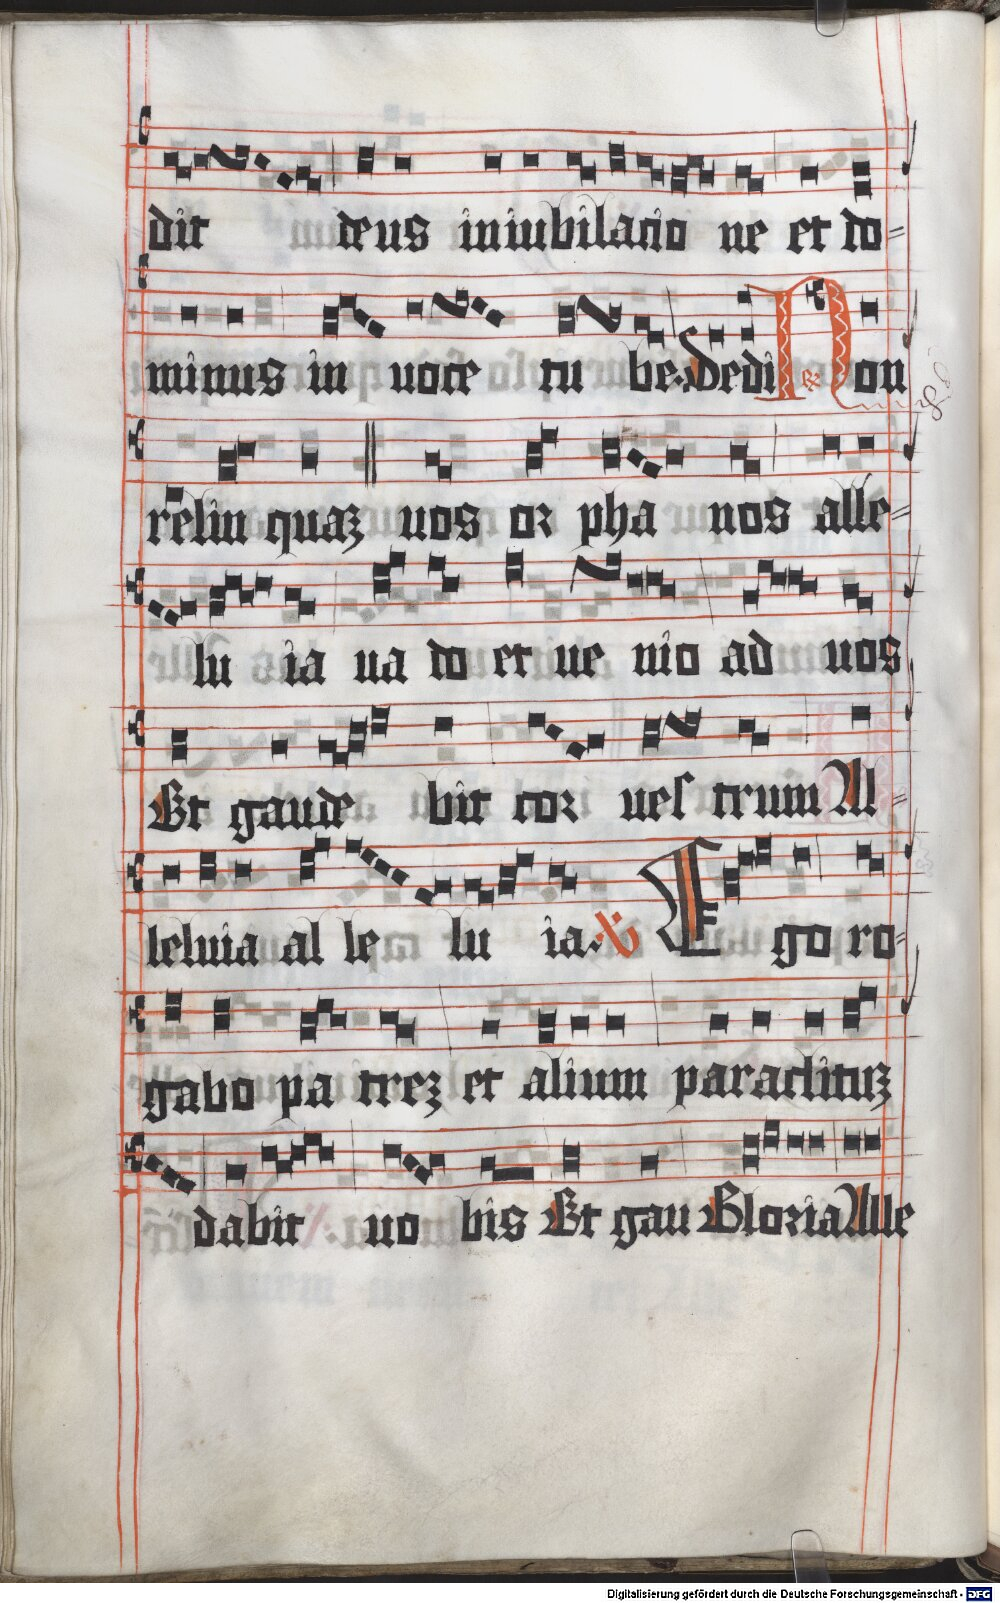 dit deus iniubilacio ne et do=
minus in uoce tu be. Dedi ℟ Non
relin quaꝫ uos or pha nos alle=
lu ia ua do et ue nio ad uos
Et gaude bit cor ues trum Al=
leluia al le lu ia. ℣ Ego ro=
gabo pa treꝫ et alium paraclituꝫ
dabit uo bis Et gau Gloria Alle
Digitalisierung gefördert durch die Deutsche Forschungsgemeinschaft - DFG